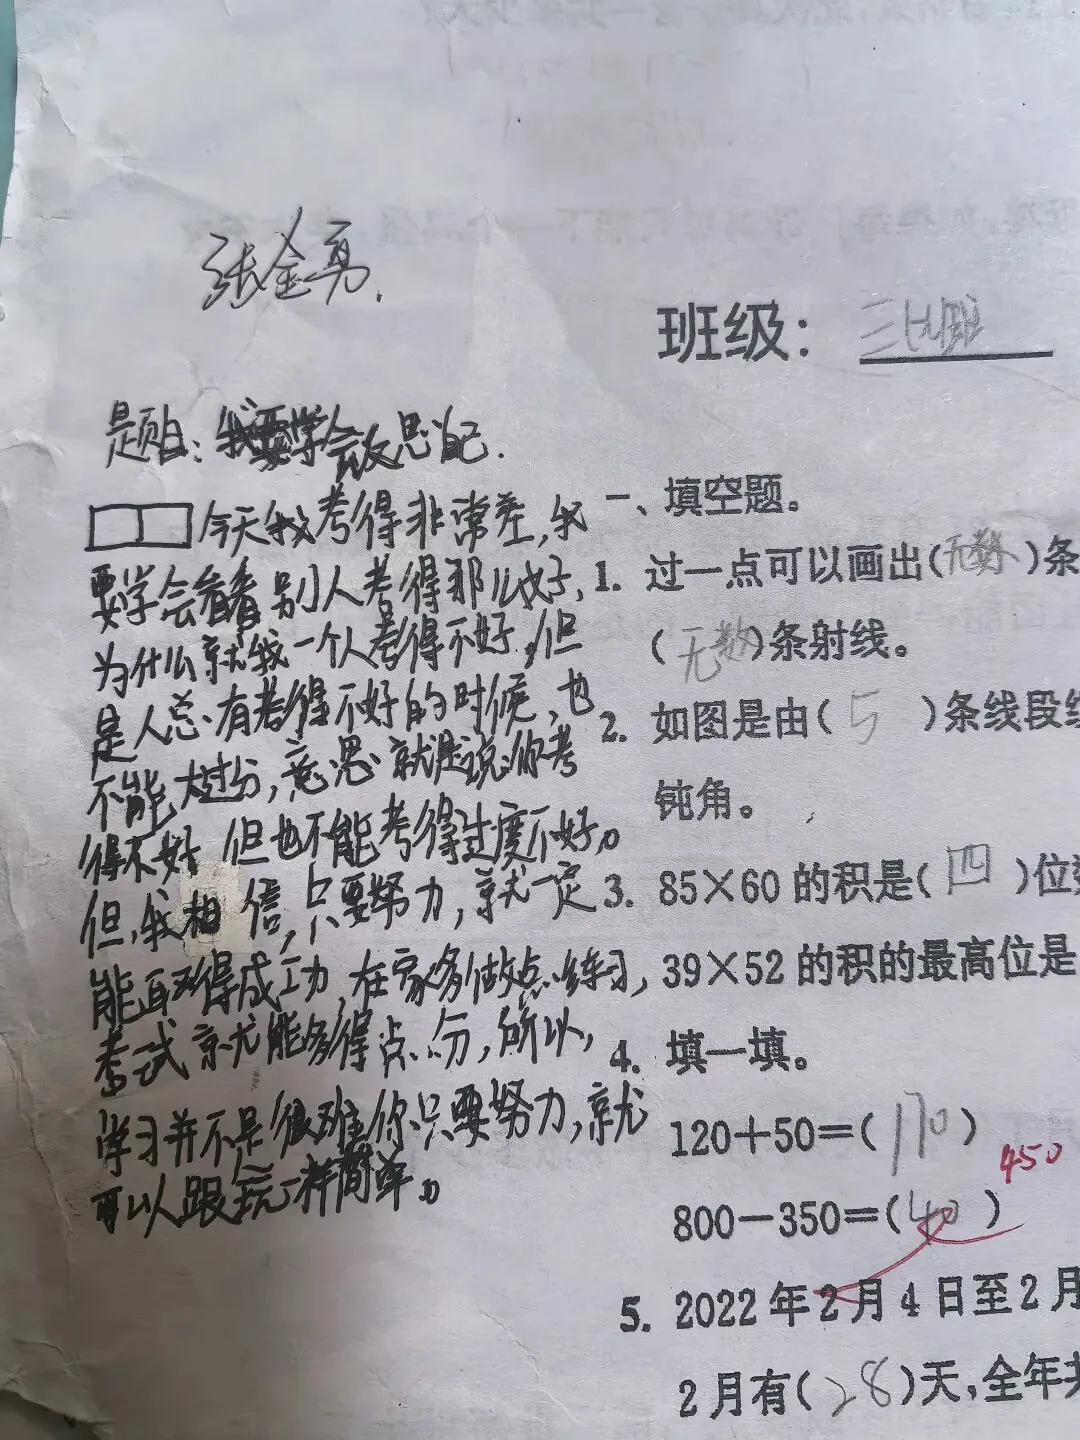 张金勇.
班级：三(2)班
题目：我要学会反思自己.
今天我考得非常差，我
要学会看看别人考得那么好，
为什么就我一个人考得不好，但
是人总有考得不好的时候，也
不能太过分，意思就是说你考
得不好，但也不能考得过度不好。
但，我相信，只要努力，就一定
能取得成功，在家多做点练习，
考试就能多得点分，所以，
学习并不是很难你只要努力，就
可以跟玩一样简单。
一、填空题。
1. 过一点可以画出(无数)条
(无数)条射线。
2. 如图是由(5)条线段组
钝角。
3. 85×60的积是(四)位数
39×52的积的最高位是
4. 填一填。
120+50=(170)
800-350=(40) 450
5. 2022年2月4日至2月
2月有(28)天，全年共